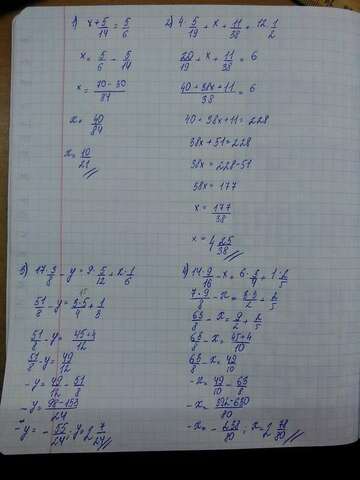 1) x + 5/14 = 5/6
x = 5/6 - 5/14
x = 70-30/84
x = 40/84
x = 10/21
2) 4·5/19 + x + 11/38 = 12·1/2
20/19 + x + 11/38 = 6
40+38x+11/38 = 6
40+38x+11=228
38x+51=228
38x=228-51
38x=177
x = 177/38
x = 4 25/38
3) 17·3/8 - y = 9·5/12 + 2·1/6
51/8 - y = 3·5/4 + 1/3
51/8 - y = 45+4/12
51/8 - y = 49/12
-y = 49/12 - 51/8
-y = 98-153/24
-y = -55/24; y = 2 7/24
4) 14·9/16 - x = 6·3/4 + 1·2/5
7·9/8 - x = 3·3/2 + 2/5
63/8 - x = 9/2 + 2/5
63/8 - x = 45+4/10
63/8 - x = 49/10
-x = 49/10 - 63/8
-x =